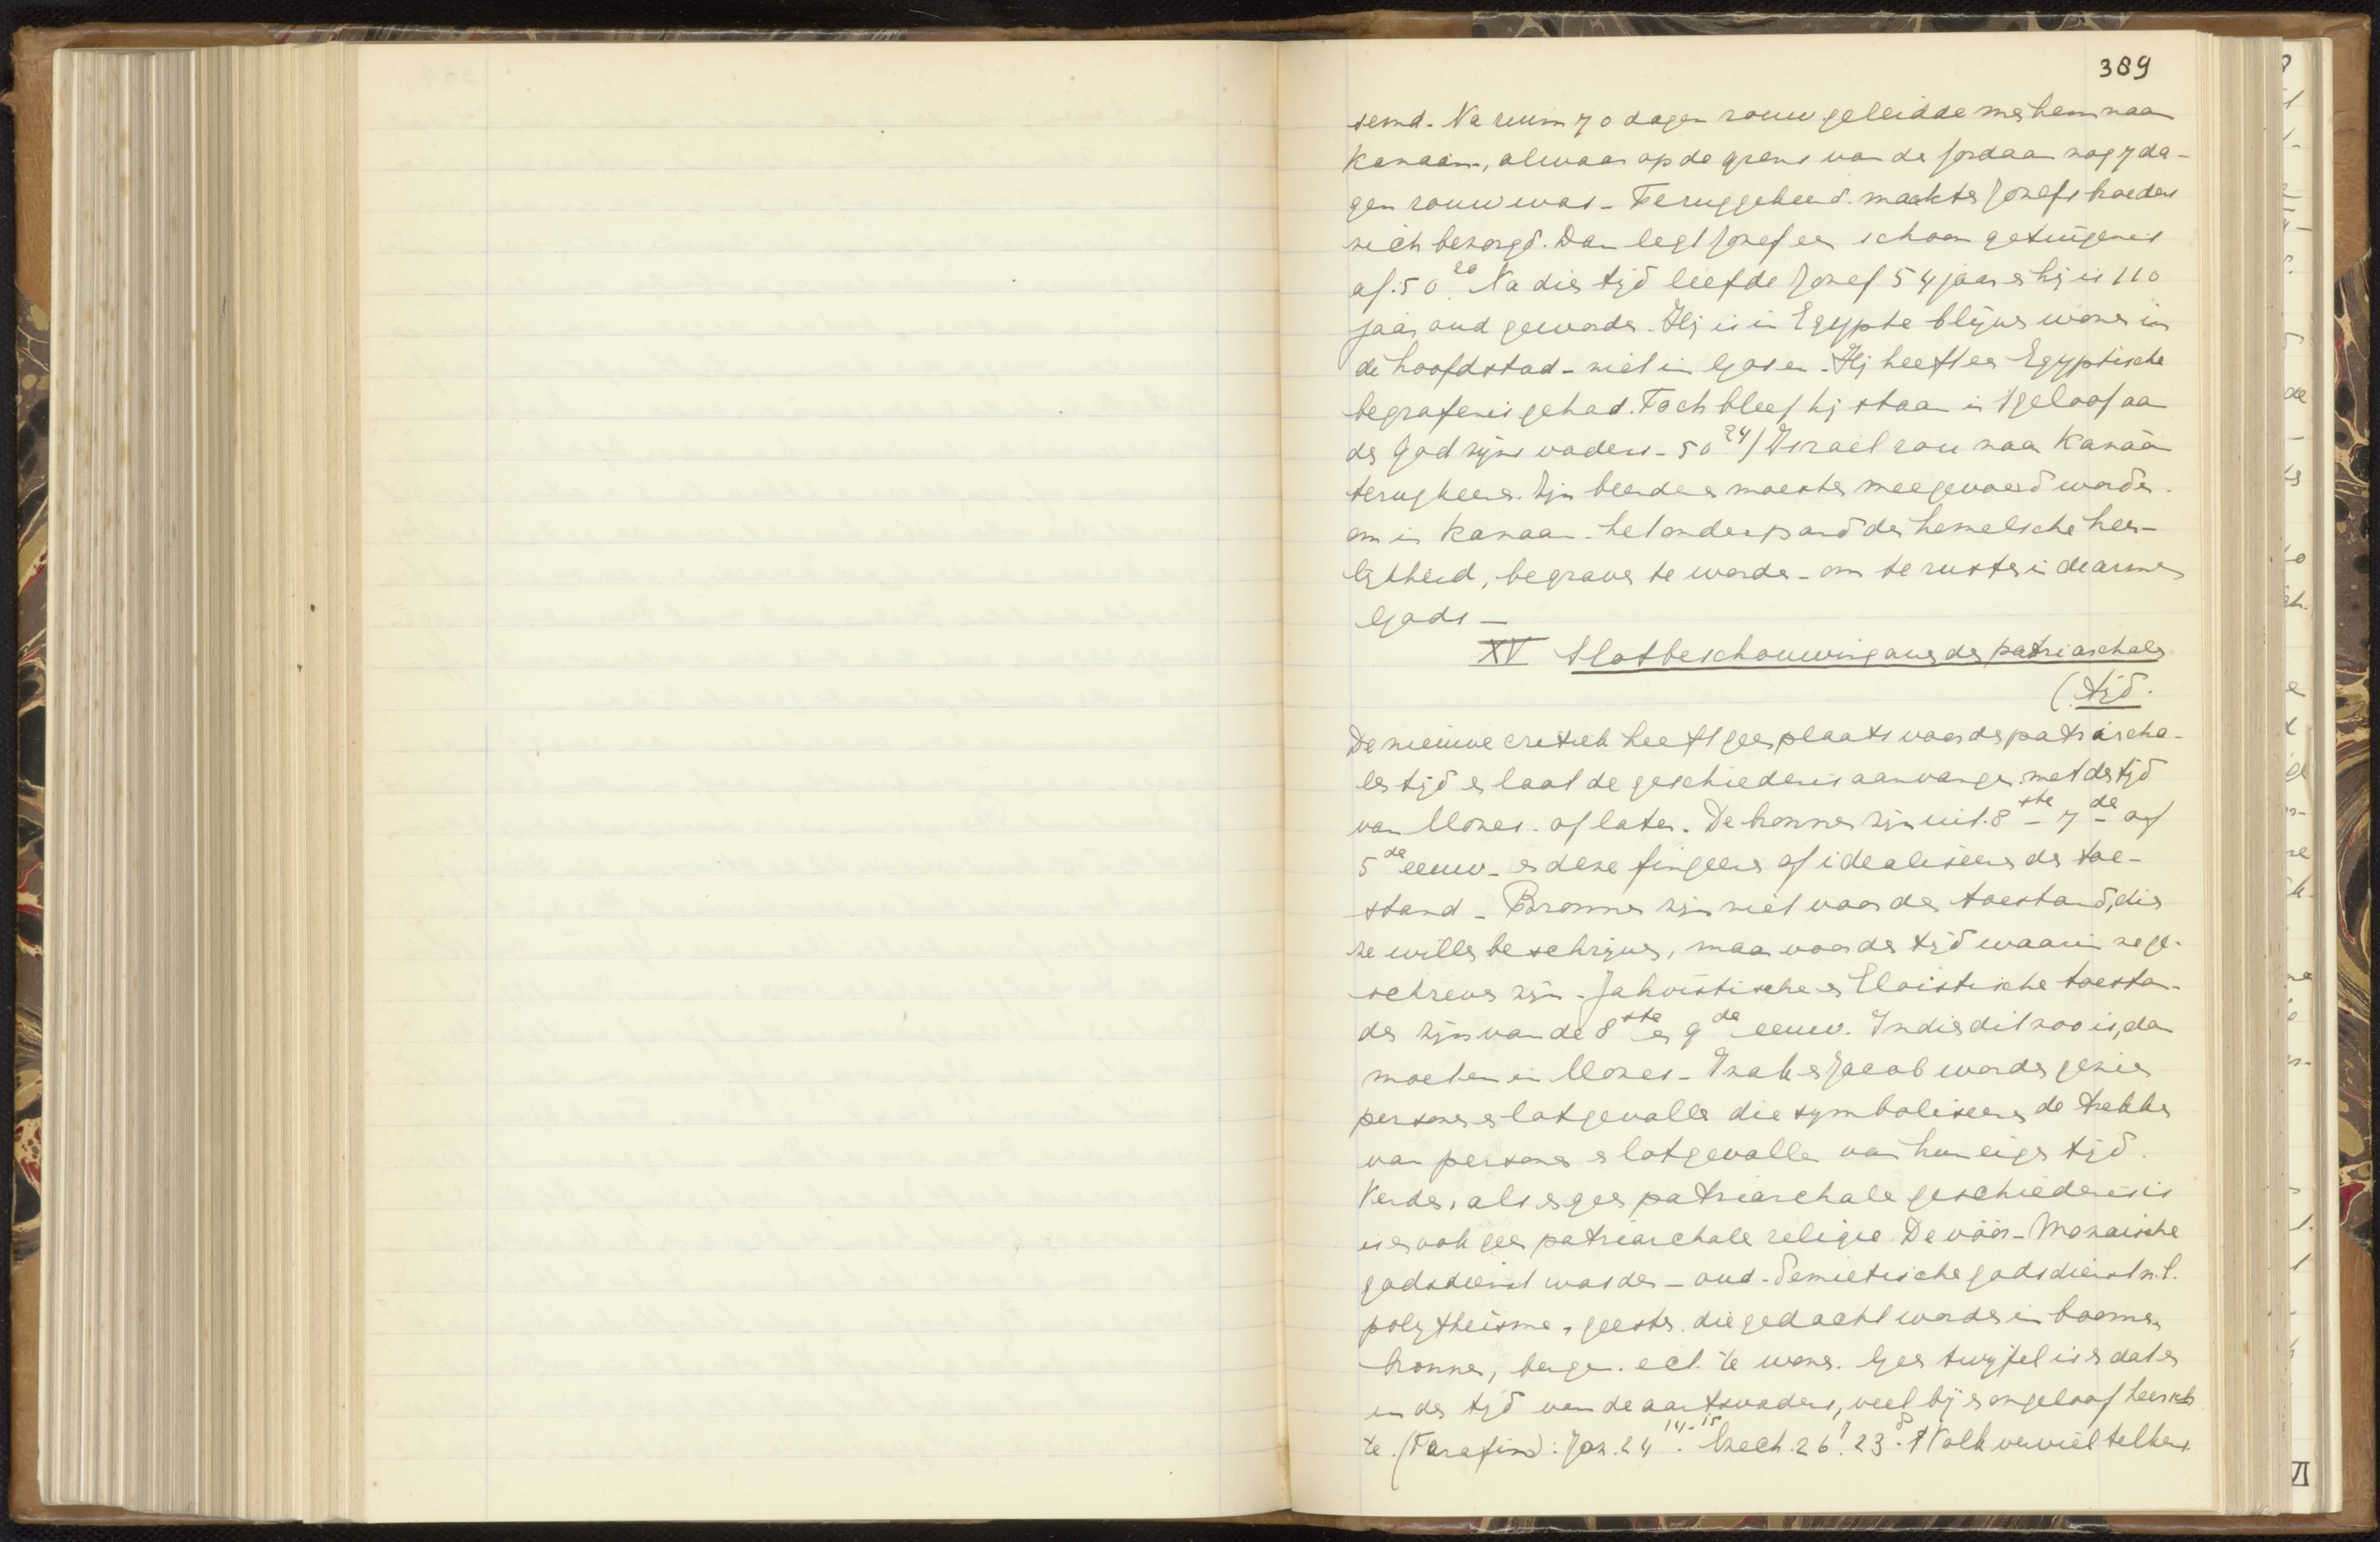 389
semd. Na ruim 70 dagen rouw geleidde men hem naar
Kanaän, alwaar op de grens van de Jordaan nog 7 da-
gen rouw was - Teruggekeerd maakten Jozefs broeders
zich bezorgd. Dan legt Jozef een schoon getuigenis
af. 50 20 Na dien tijd leefde Jozef 54 jaar en hij is 110
jaar oud geworden. Hij is in Egypte blijven wonen in
de hoofdstad - niet in Gosen. Hij heeft een Egyptische
begrafenis gehad. Toch bleef hij staan in 't geloof aan
den God zijns vaders - 50 24) Israel zou naar Kanaän
terugkeeren. Zijn beenderen moesten meegevoerd worden.
om in Kanaan - het onderpand der hemelsche heer-
lijkheid, begraven te worden - om te rusten in de armen
Gods —
XV Slotbeschouwing over den patriarchalen
(tijd.
De nieuwe critiek heeft geen plaats voor den patriarcha-
len tijd en laat de geschiedenis aanvangen met den tijd
van Mozes - of later. De bronnen zijn uit 8ste - 7de of
5de eeuw - en deze fingeeren of idealiseeren den toe-
stand - Bronnen zijn niet voor den toestand, dien
ze willen beschrijven, maar voor den tijd waarin ze ge-
schreven zijn - Jahvistische en Eloistische toestan-
den zijn van de 8ste en 9de eeuw. Indien dit zoo is, dan
moeten in Mozes - Izak en Jacob worden gezien
personen en lotgevallen die symboliseeren de trekken
van personen en lotgevallen van hun eigen tijd.
Verder, als er geen patriarchale geschiedenis is
is er ook geen patriarchale religie. De vóór-Mozaische
godsdienst was den - oud-Semietische godsdienst n.l.
polytheisme, geesten die gedacht worden in boomen
bronnen, bergen ect. te wonen. Geen twijfel is er dat er
in den tijd van de aartsvaders, veel bijgeloof heersch
te. (Terafim): Joz. 24 14-15. Ezech. 26? 23 8. 't Volk verviel telkens